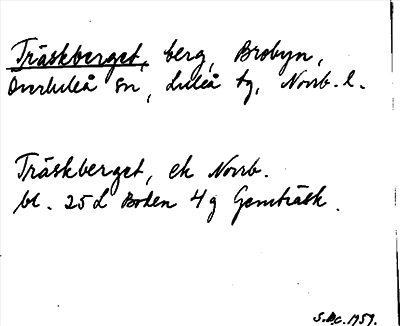 Träskberget, berg, Brobyn,
Överluleå sn, Luleå tg, Norrb. l.
Träskberget, ek Norrb.
bl. 25 L Boden 4 g Gemträsk.
S.M.C. 1959.